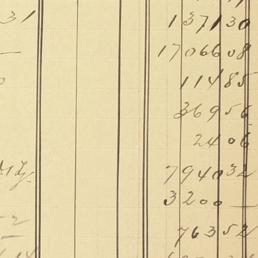 31 1371 30
17066 08
114 85
369 56
24 06
7940 32
3200 —
763 52